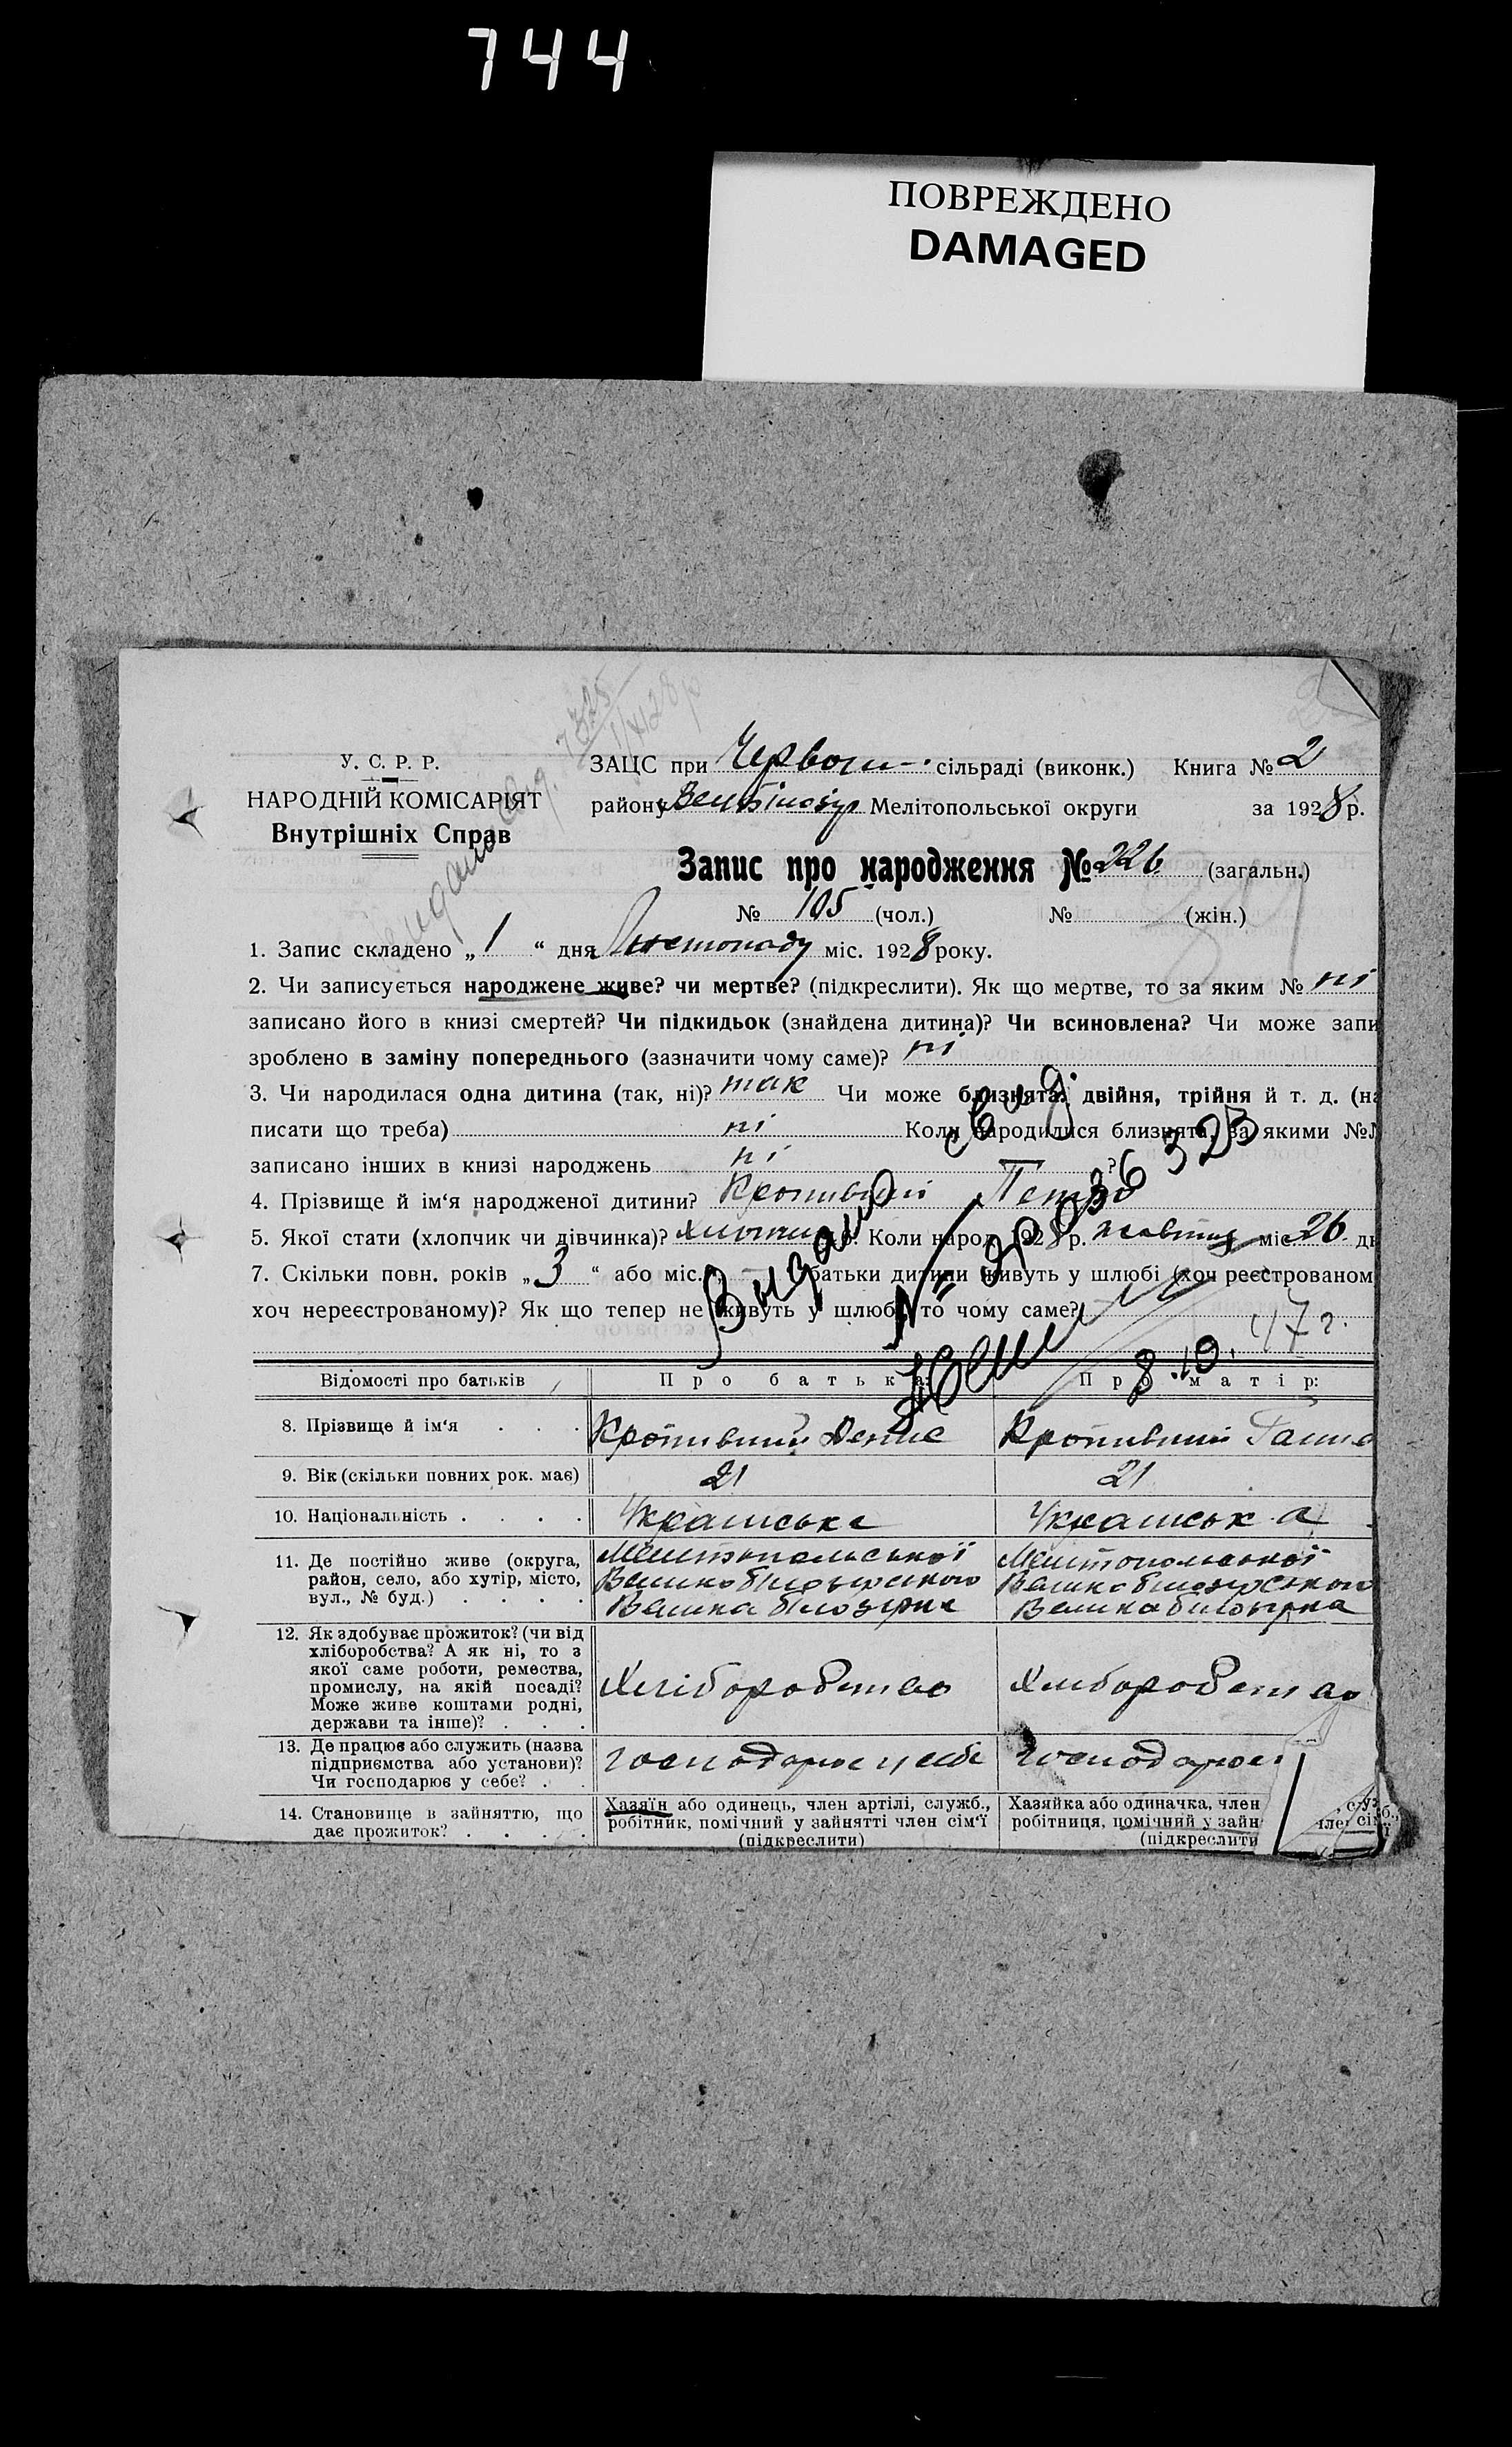 744
ПОВРЕЖДЕНО
DAMAGED
У. С. Р. Р.
НАРОДНІЙ КОМІСАРІЯТ
Внутрішніх Справ
ЗАЦС при Червон- сільраді (виконк.) Книга № 2
району Мелітопольської округи за 1928 р.
Запис про народження № 226 (загальн.)
№ 105 (чол.) № (жін.)
1. Запис складено „ 1 “ дня Листопаду міс. 1928 року.
2. Чи записується народжене живе? чи мертве? (підкреслити). Як що мертве, то за яким № ні
записано його в книзі смертей? Чи підкидьок (знайдена дитина)? Чи всиновлена? Чи може запи
зроблено в заміну попереднього (зазначити чому саме)? ні
3. Чи народилася одна дитина (так, ні)? так Чи може близнята: двійня, трійня й т. д. (на
писати що треба) ні Коли народилися близнята, за якими №№
записано інших в книзі народжень ні ?
4. Прізвище й ім‘я народженої дитини? Кропивний Петро
5. Якої стати (хлопчик чи дівчинка)? хлопчик 6. Коли народ. 1928 р. жовтня міс. 26 дн
7. Скільки повн. років „ 3 “ або міс. батьки дитини живуть у шлюбі (хоч реєстрованом
хоч нереєстрованому)? Як що тепер не живуть у шлюбі, то чому саме?
Видано свид.
№ 325
8.10. 47 г.
Відомості про батьків Про батька: Про матір:
8. Прізвище й ім‘я . . . Кропивний Денис Кропивний Ганна
9. Вік (скільки повних рок. має) 21 21
10. Національність . . . . Українська Українська
11. Де постійно живе (округа, Мелітопольської Мелітопольської
район, село, або хутір, місто, Великобілозерського Великобілозерського
вул., № буд.) . . . . Велика білозірка Велика білозірка
12. Як здобуває прожиток? (чи від
хліборобства? А як ні, то з
якої саме роботи, ремества,
промислу, на якій посаді? Хліборобство Хліборобство
Може живе коштами родні,
держави та інше)? . . .
13. Де працює або служить (назва
підприємства або установи)? господарює у себе господарює
Чи господарює у себе? . .
14. Становище в зайняттю, що Хазяїн або одинець, член артілі, служб., Хазяйка або одиначка, член
дає прожиток? . . . . робітник, помічний у зайнятті член сім‘ї робітниця, помічний у зайн
(підкреслити) (підкреслити